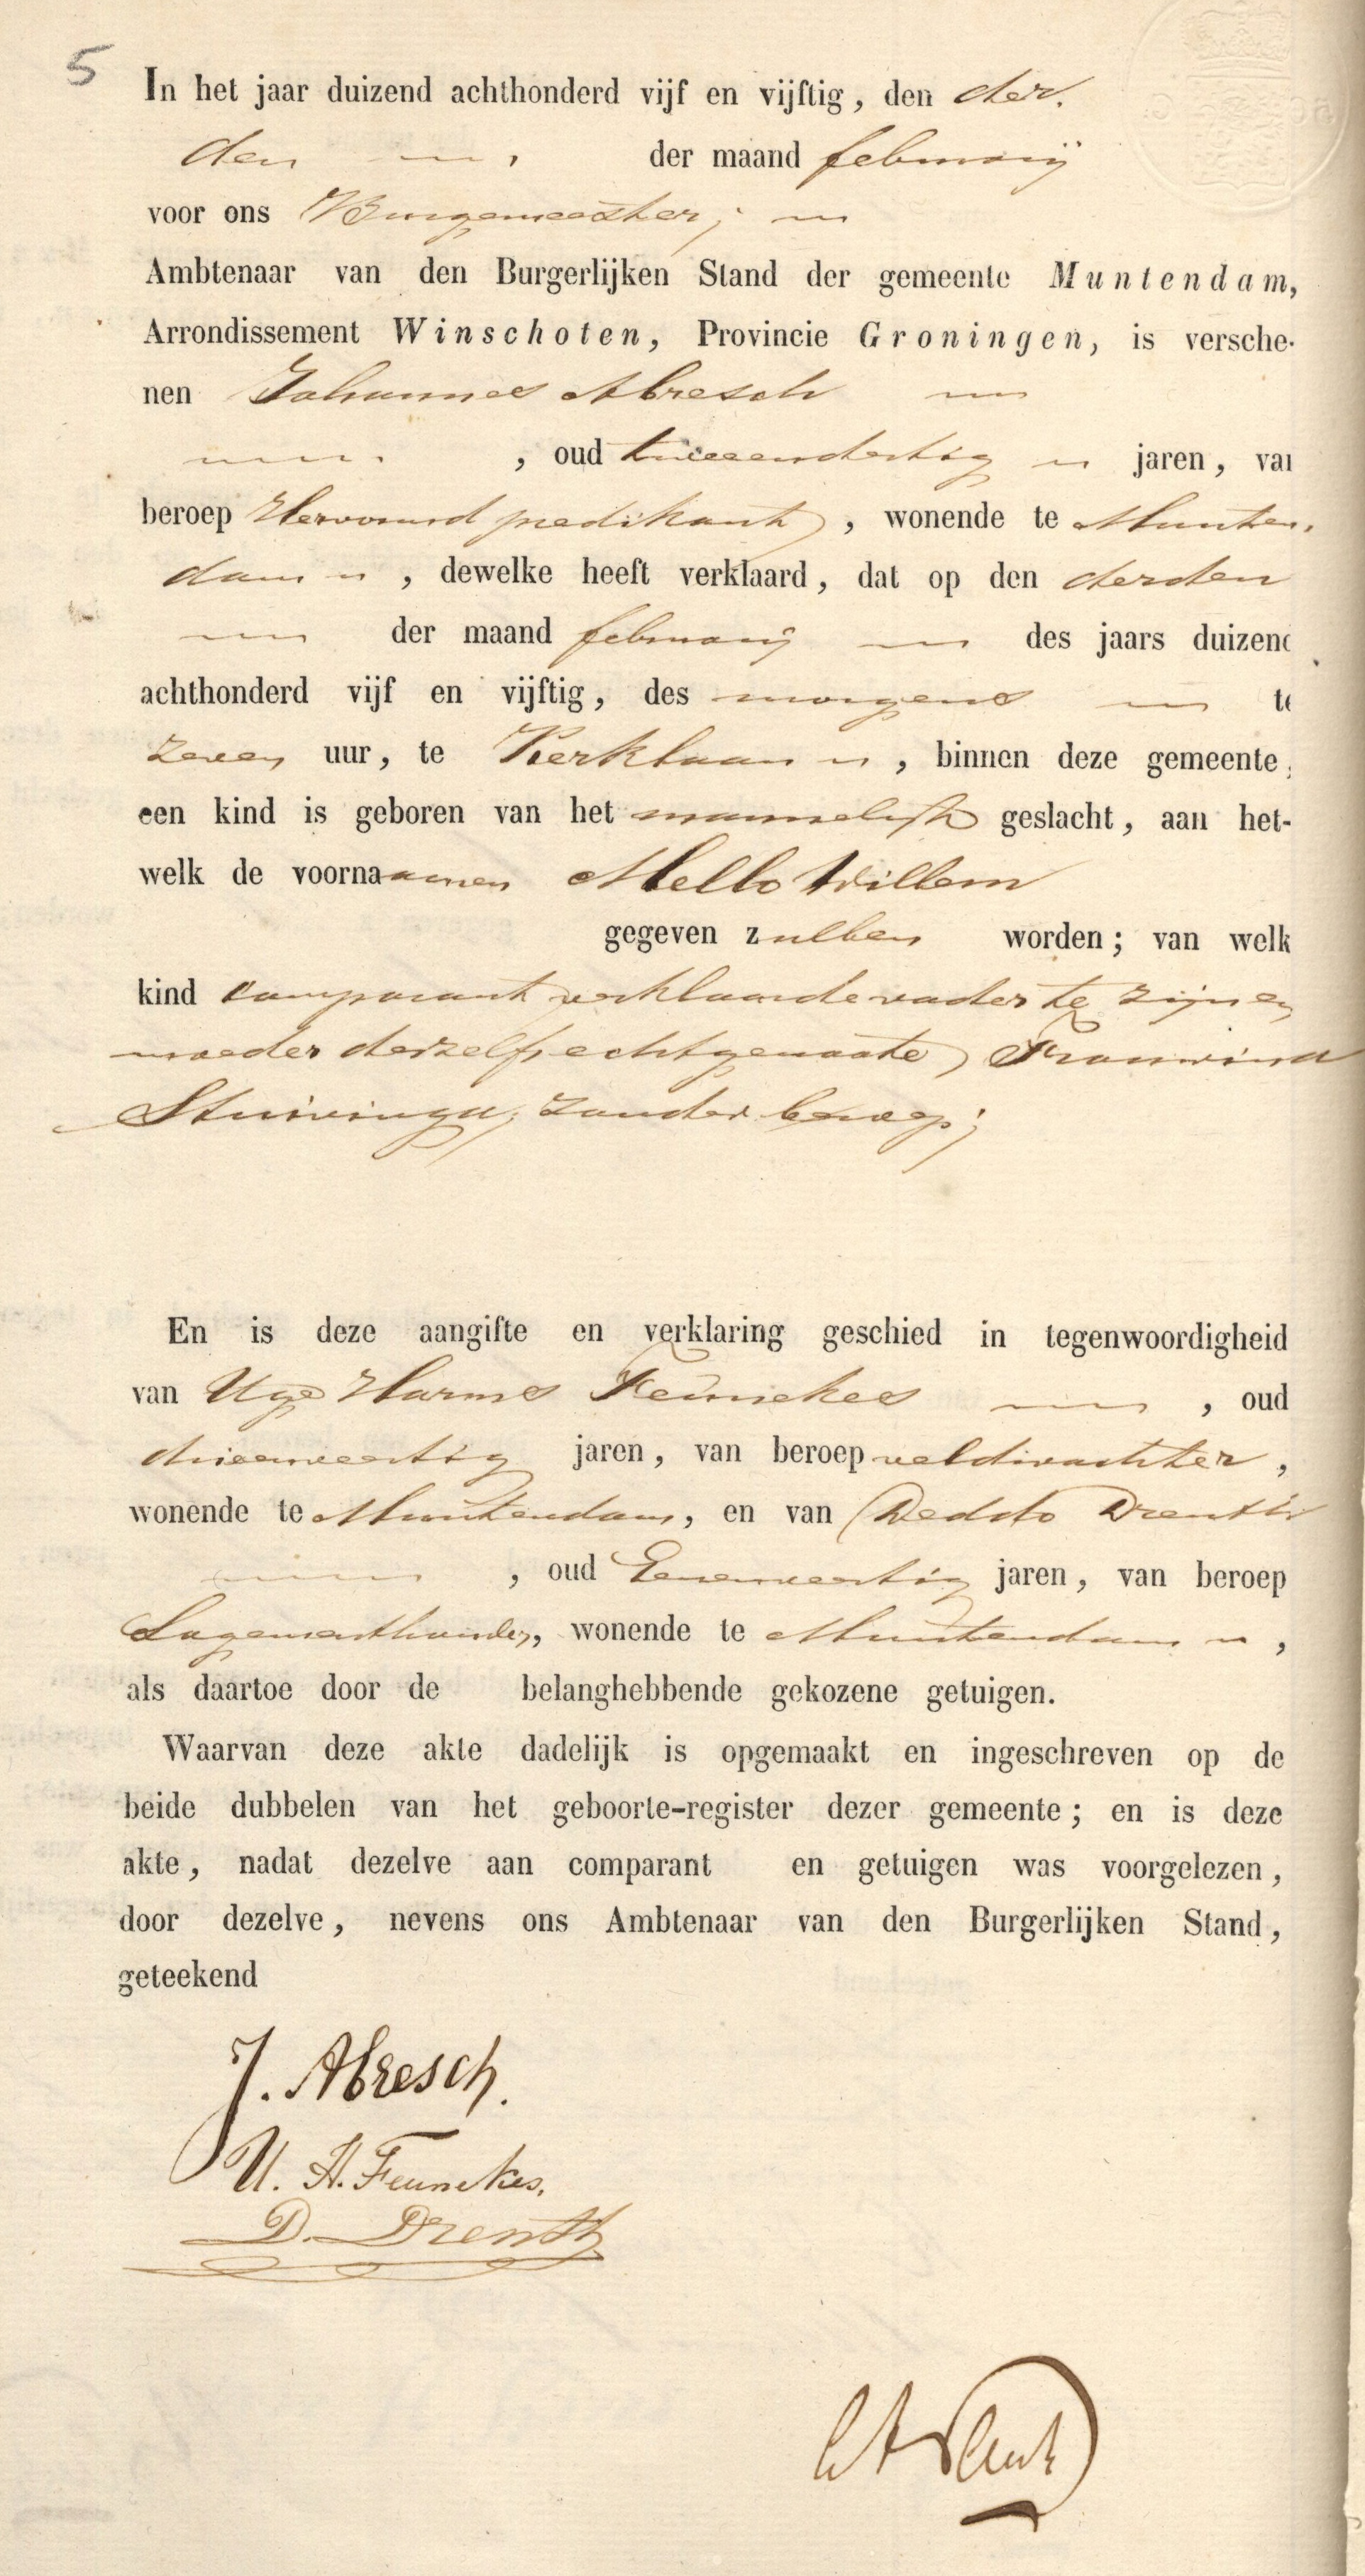 5
In het jaar duizend achthonderd vijf en vijftig, den der-
den der maand februarij
voor ons Burgemeester,
Ambtenaar van den Burgerlijken Stand der gemeente Muntendam,
Arrondissement Winschoten, Provincie Groningen, is versche-
nen Johannes Abresch
, oud tweeendertig jaren, van
beroep Hervormd predikant, wonende te Munten-
dam, dewelke heeft verklaard, dat op den derden
der maand februarij des jaars duizend
achthonderd vijf en vijftig, des morgens te
zeven uur, te Kerklaan, binnen deze gemeente,
een kind is geboren van het mannelijk geslacht, aan het-
welk de voornaamen Mello Willem
gegeven zullen worden; van welk
kind comparant verklaarde vader te zijn en
moeder deszelfs echtgenoote, Frouwina
Stuivinga, zonder beroep;
En is deze aangifte en verklaring geschied in tegenwoordigheid
van Uge Harms Feunekes, oud
drieenveertig jaren, van beroep veldwachter,
wonende te Muntendam, en van Deddo Drenth
, oud Eenenveertig jaren, van beroep
Logementhouder, wonende te Muntendam,
als daartoe door de belanghebbende gekozene getuigen.
Waarvan deze akte dadelijk is opgemaakt en ingeschreven op de
beide dubbelen van het geboorte-register dezer gemeente; en is deze
akte, nadat dezelve aan comparant en getuigen was voorgelezen,
door dezelve, nevens ons Ambtenaar van den Burgerlijken Stand,
geteekend
J. Abresch.
U. H. Feunekes.
D. Drenth